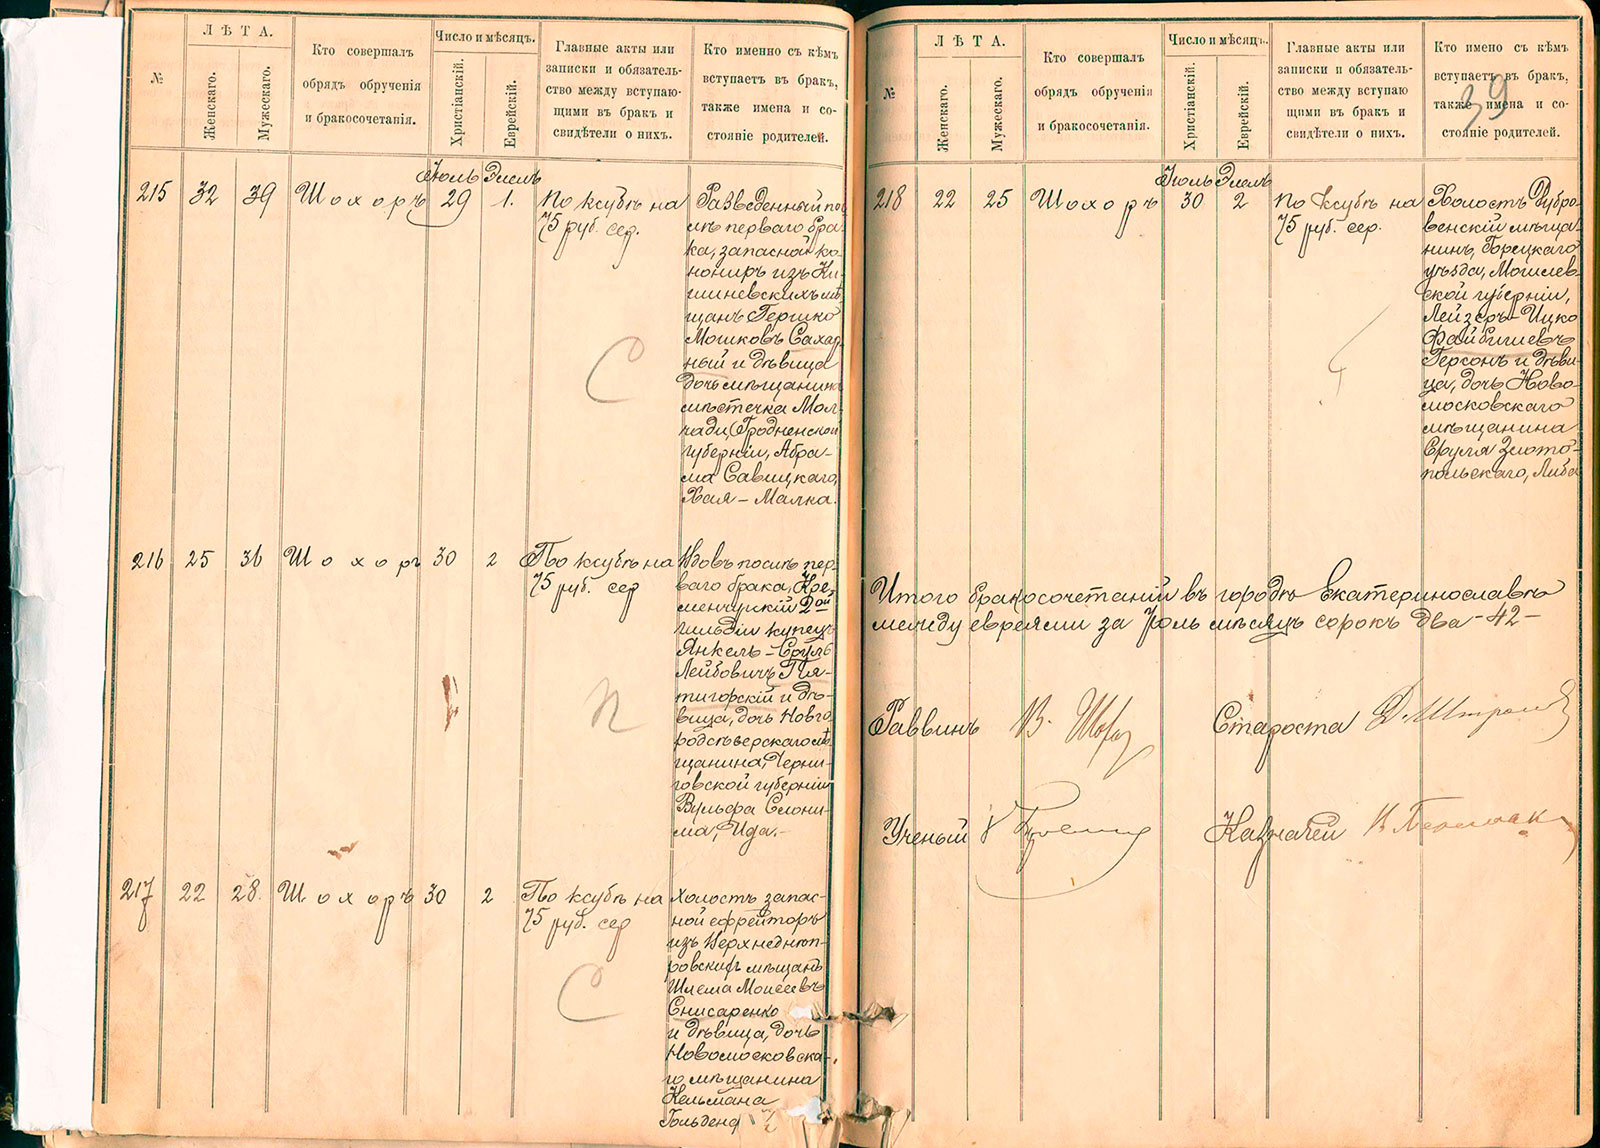 №
ЛѢТА.
Женскаго.
Мужескаго.
Кто совершалъ
обрядъ обрученія
и бракосочетанія.
Число и мѣсяцъ.
Христіанскій.
Еврейскій.
Главные акты или
записки и обязатель-
ство между вступаю-
щими въ бракъ и
свидѣтели о нихъ.
Кто именно съ кѣмъ
вступаетъ въ бракъ,
также имена и со-
стояніе родителей.
215
32
39
Шохоръ
Іюль
29
Элелъ
1.
По ксубѣ на
75 руб. сер.
Разведенный по
слѣ перваго бра-
ка, запасной ка-
нониръ изъ Ки-
шиневскихъ мѣ-
щанъ Гершко
Мошковъ Сахар-
ный и дѣвица
дочь мѣщанина
мѣстечка Мол-
чади, Гродненской
губерніи, Абра-
ма Савицкаго,
Хая – Малка.
С
216
25
36
Шохоръ
30
2
По ксубѣ на
75 руб. сер
Вдовъ послѣ пер-
ваго брака, Кре-
менчугскій 2ой
гильдіи купецъ
Янкель – Сруль
Лейбовичъ Пя-
тигорскій и дѣ-
вица, дочь Новго
родсѣверскаго мѣ
щанина, Черни-
говской губерніи
Вульфа Слони-
ма, Ида. –
П
217
22
28.
Шохоръ
30
2
По ксубѣ на
75 руб. сер
Холостъ запас-
ной ефрейторъ
изъ Верхнеднѣп-
ровскихъ мѣщанъ
Шлема Моисеевъ
Снисаренко
и дѣвица, дочь
Новомосковска-
го мѣщанина
Кельмана
Гольденд
С
№
ЛѢТА.
Женскаго.
Мужескаго.
Кто совершалъ
обрядъ обрученія
и бракосочетанія.
Число и мѣсяцъ.
Христіанскій.
Еврейскій.
Главные акты или
записки и обязатель-
ство между вступаю
щими въ бракъ и
свидѣтели о нихъ.
Кто имено съ кѣмъ
вступаетъ въ бракъ,
также имена и со-
стояніе родителей.
39
218
22
25
Шохоръ
Іюль
30
Элелъ
2
По ксубѣ на
75 руб. сер.
Холостъ Дубро-
венскій мѣща-
нинъ, Горецкаго
уѣзда, Могилев-
ской губерніи,
Лейзеръ – Ицко
Файбишевъ
Герсонъ и дѣви-
ца, дочь Ново-
московскаго
мѣщанина
Сруля Злото-
польскаго, Либа
Итого бракосочетаній въ городѣ Екатеринославѣ
между евреями за Іюль мѣсяцъ сорокъ два – 42 –
Раввинъ В. Шохоръ
Староста Д. Штром
Ученый
Казначей